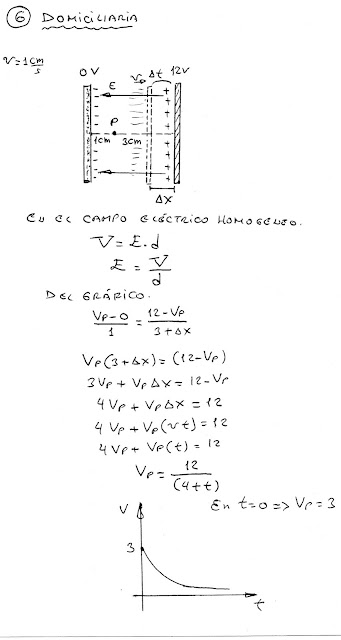 6 DOMICILIARIA
v=1 cm/s
0V v Δt 12V
E
P
1cm 3cm
Δx
EN EL CAMPO ELÉCTRICO HOMOGENEO.
V = E.d
E = V/d
DEL GRÁFICO.
(Vp-0)/1 = (12-Vp)/(3+Δx)
Vp(3+Δx) = (12-Vp)
3Vp + VpΔx = 12-Vp
4Vp + VpΔx = 12
4Vp + Vp(vt) = 12
4Vp + Vp(t) = 12
Vp = 12/(4+t)
V En t=0 => Vp=3
3
t